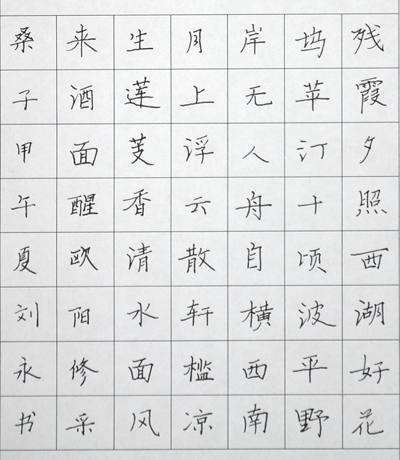 残霞夕照西湖好花
坞苹汀十顷波平野
岸无人舟自横西南
月上浮云散轩槛凉
生莲芰香清水面风
来酒面醒欧阳修采
桑子甲午夏刘永书